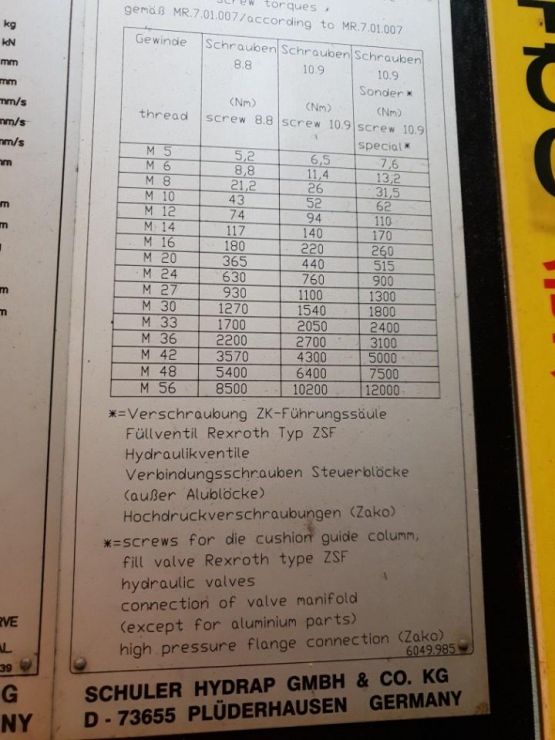 screw torques,
gemäß MR.7.01.007/according to MR.7.01.007
Gewinde Schrauben Schrauben Schrauben
8.8 10.9 10.9
Sonder*
(Nm) (Nm) (Nm)
thread screw 8.8 screw 10.9 screw 10.9
special*
M 5 5,2 6,5 7,6
M 6 8,8 11,4 13,2
M 8 21,2 26 31,5
M 10 43 52 62
M 12 74 94 110
M 14 117 140 170
M 16 180 220 260
M 20 365 440 515
M 24 630 760 900
M 27 930 1100 1300
M 30 1270 1540 1800
M 33 1700 2050 2400
M 36 2200 2700 3100
M 42 3570 4300 5000
M 48 5400 6400 7500
M 56 8500 10200 12000
*=Verschraubung ZK-Führungssäule
Füllventil Rexroth Typ ZSF
Hydraulikventile
Verbindungsschrauben Steuerblöcke
(außer Alublöcke)
Hochdruckverschraubungen (Zako)
*=screws for die cushion guide columm,
fill valve Rexroth type ZSF
hydraulic valves
connection of valve manifold
(except for aluminium parts)
high pressure flange connection (Zako)
6049.985
SCHULER HYDRAP GMBH & CO. KG
D - 73655 PLÜDERHAUSEN GERMANY
kg
kN
mm
mm
mm/s
mm/s
mm/s
39
G
NY